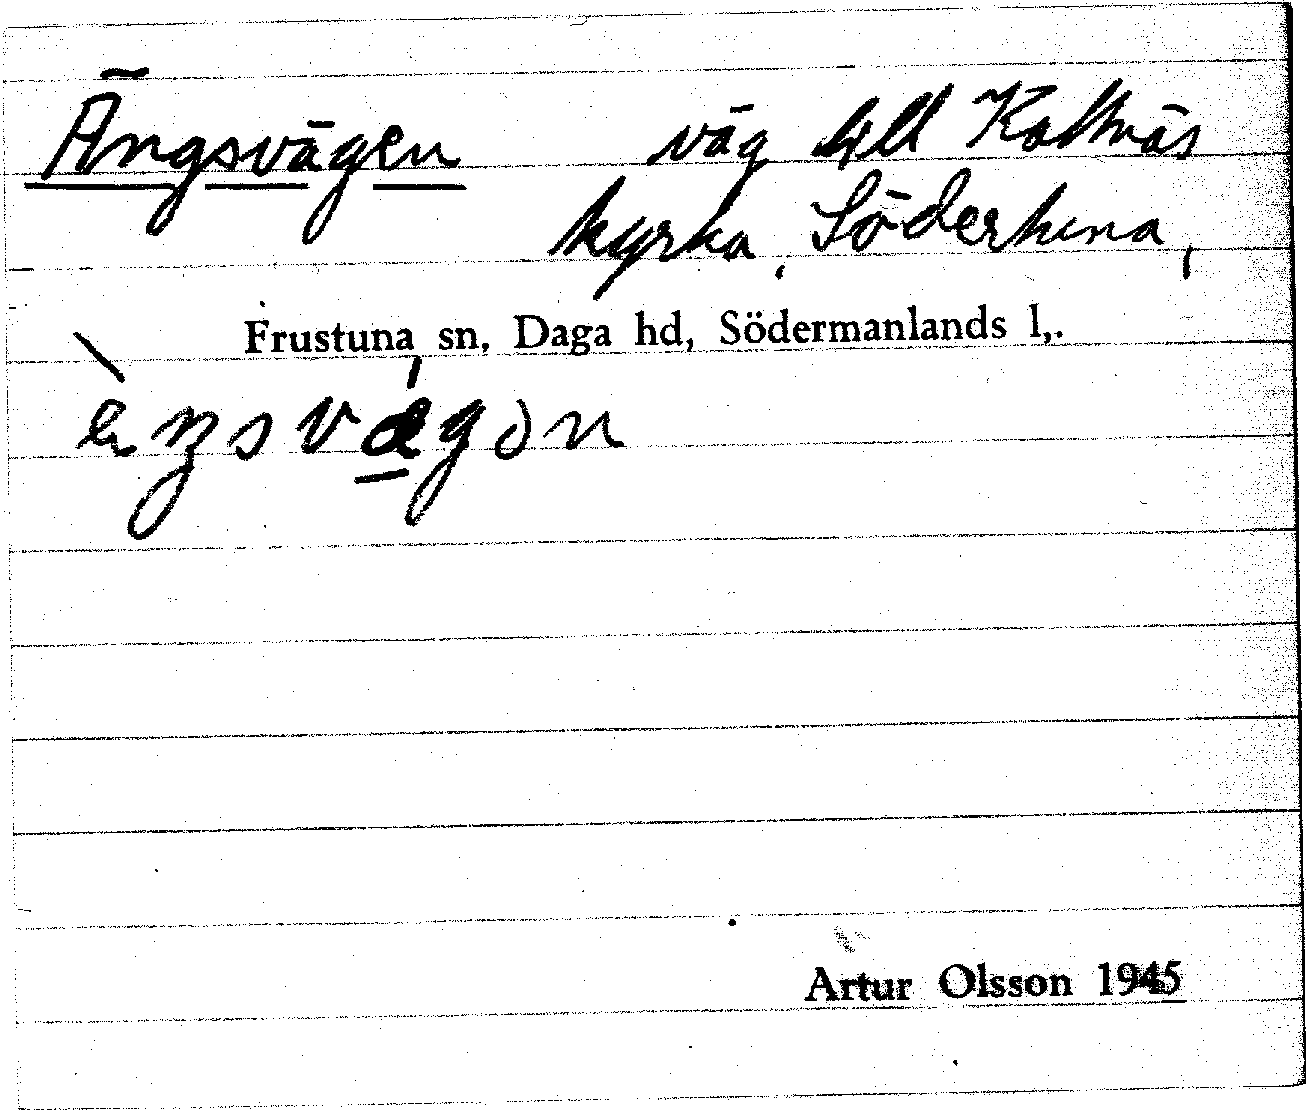 Ängsvägen väg till Kattnäs
kyrka, Södertuna,
Frustuna sn, Daga hd, Södermanlands l,.
Artur Olsson 1945